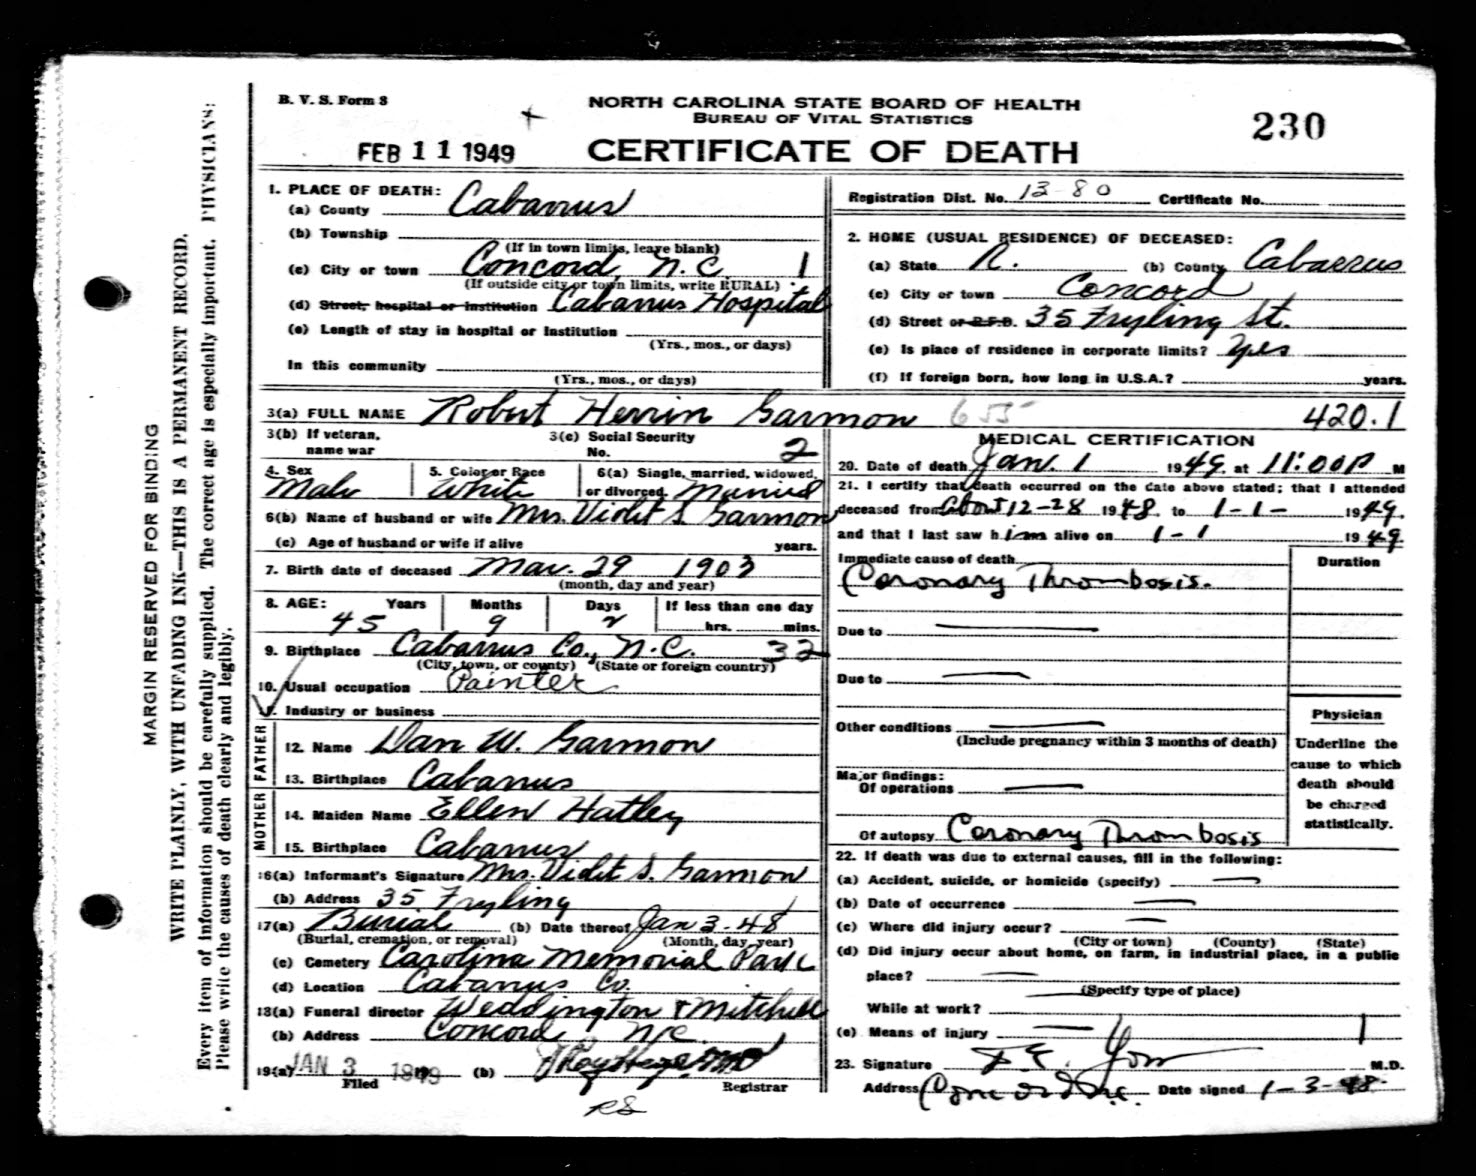 B. V. S. Form 8
NORTH CAROLINA STATE BOARD OF HEALTH
BUREAU OF VITAL STATISTICS
230
FEB 11 1949
CERTIFICATE OF DEATH
MARGIN RESERVED FOR BINDING
WRITE PLAINLY, WITH UNFADING INK—THIS IS A PERMANENT RECORD.
Every item of information should be carefully supplied. The correct age is especially important. PHYSICIANS:
Please write the causes of death clearly and legibly.
1. PLACE OF DEATH:
(a) County Cabarrus
(b) Township
(If in town limits, leave blank)
(c) City or town Concord, N.C. 1
(If outside city or town limits, write RURAL)
(d) Street, hospital or institution Cabarrus Hospital
(e) Length of stay in hospital or institution
(Yrs., mos., or days)
In this community
(Yrs., mos., or days)
Registration Dist. No. 13-80 Certificate No.
2. HOME (USUAL RESIDENCE) OF DECEASED:
(a) State N. (b) County Cabarrus
(c) City or town Concord
(d) Street or R.F.D. 35 Fryling St.
(e) Is place of residence in corporate limits? Yes
(f) If foreign born, how long in U.S.A.? years.
3(a) FULL NAME Robert Herrin Garmon 655 420.1
3(b) If veteran, name war
3(c) Social Security No. 2
4. Sex Male
5. Color or Race White
6(a) Single, married, widowed, or divorced Married
6(b) Name of husband or wife Mrs. Violet S. Garmon
(c) Age of husband or wife if alive years.
7. Birth date of deceased Mar. 29 1903
(month, day and year)
8. AGE: Years 45 Months 9 Days 2 If less than one day hrs. mins.
9. Birthplace Cabarrus Co., N.C. 32
(City, town, or county) (State or foreign country)
10. Usual occupation Painter
Industry or business
FATHER
12. Name Dan W. Garmon
13. Birthplace Cabarrus
MOTHER
14. Maiden Name Ellen Hatley
15. Birthplace Cabarrus
16(a) Informant's Signature Mrs. Violet S. Garmon
(b) Address 35 Fryling
17(a) Burial (b) Date thereof Jan 3-48
(Burial, cremation, or removal) (Month, day, year)
(c) Cemetery Carolina Memorial Park
(d) Location Cabarrus Co.
18(a) Funeral director Weddington & Mitchell
(b) Address Concord, N.C.
19(a) JAN 3 1949 (b)
Filed Registrar
RS
MEDICAL CERTIFICATION
20. Date of death Jan. 1 1949 at 11:00P M
21. I certify that death occurred on the date above stated; that I attended
deceased from about 12-28 1948. to 1-1- 1949.
and that I last saw him alive on 1-1 1949
Immediate cause of death Duration
Coronary Thrombosis.
Due to
Due to
Other conditions
(Include pregnancy within 3 months of death)
Major findings:
Of operations
Of autopsy Coronary Thrombosis
Physician
Underline the
cause to which
death should
be charged
statistically.
22. If death was due to external causes, fill in the following:
(a) Accident, suicide, or homicide (specify)
(b) Date of occurrence
(c) Where did injury occur?
(City or town) (County) (State)
(d) Did injury occur about home, on farm, in industrial place, in a public
place?
(Specify type of place)
While at work?
(e) Means of injury 1
23. Signature M.D.
Address Concord N.C. Date signed 1-3-48